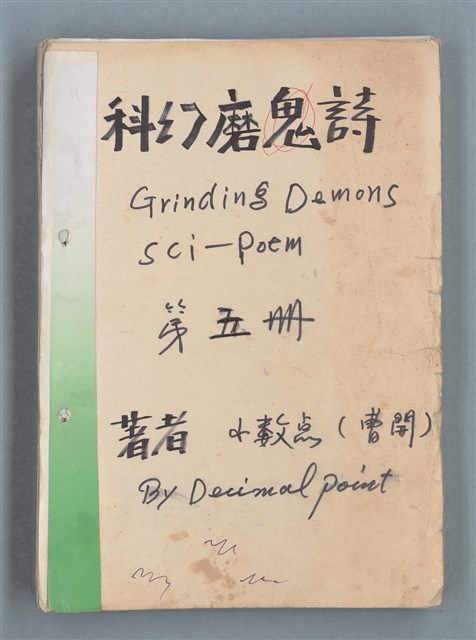 科幻磨鬼詩
Grinding Demons
sci-Poem
第五冊
著者 小數点(曹開)
By Decimal point